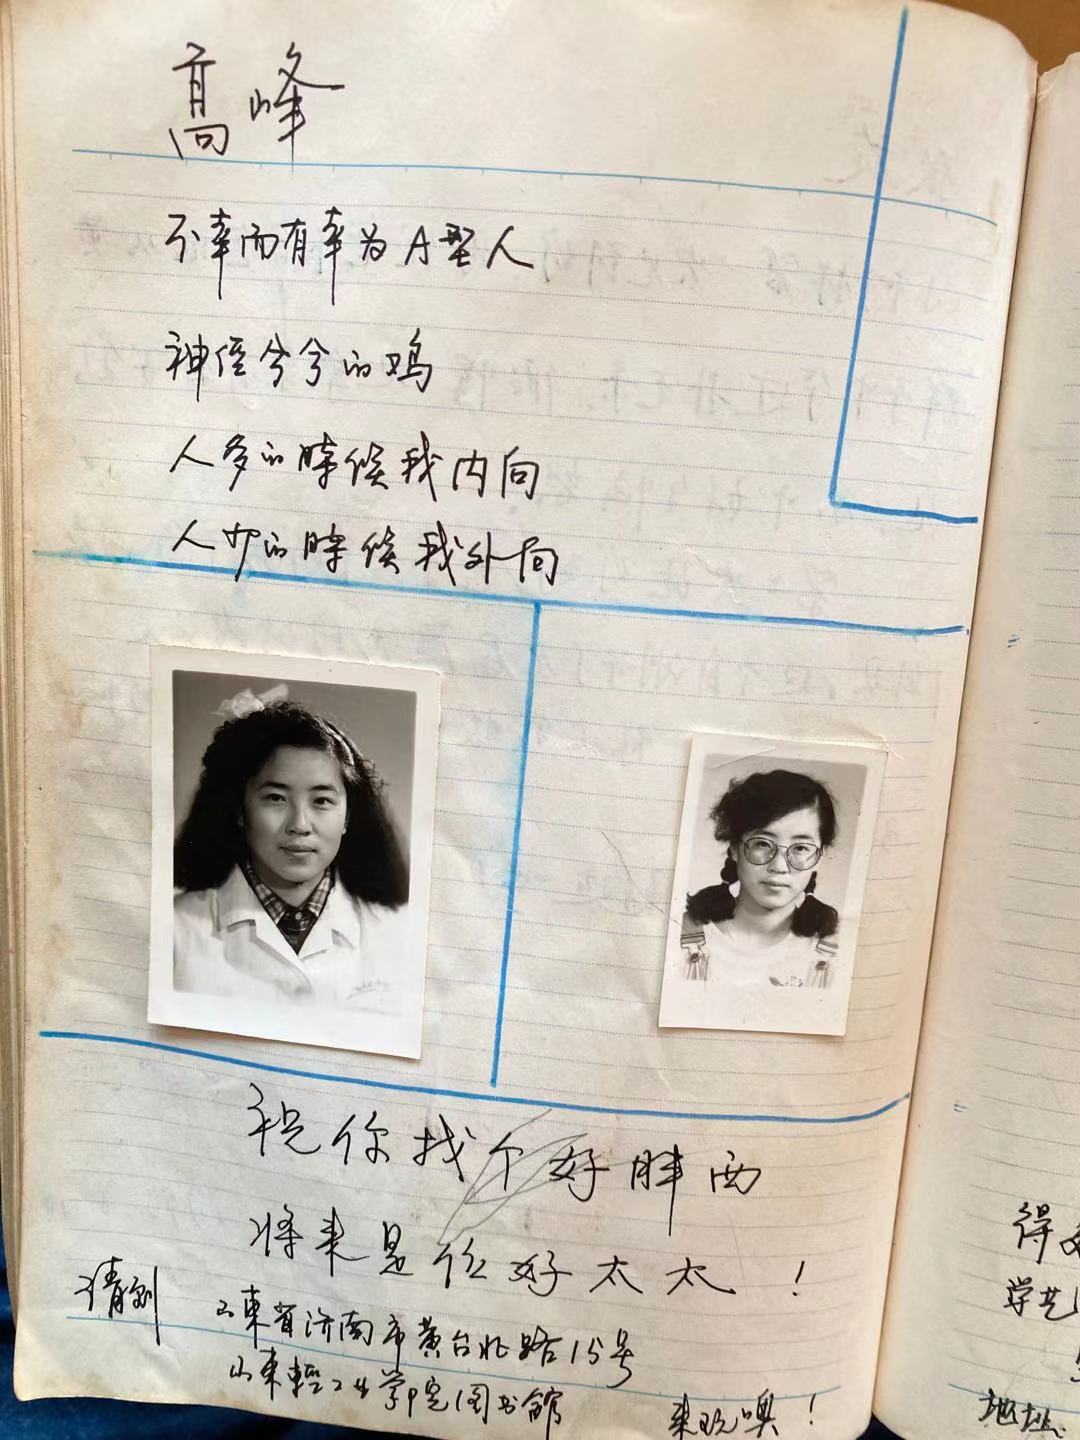 高峰
不幸而有幸为A型人
神径兮兮的鸡
人多的時候我内向
人少的時候我外向
祝你找个好胖西
将来是位好太太！
请到
山東省济南市黄台北路15号
山東輕工业学院图书館
来玩噢！
得
学艺
地址